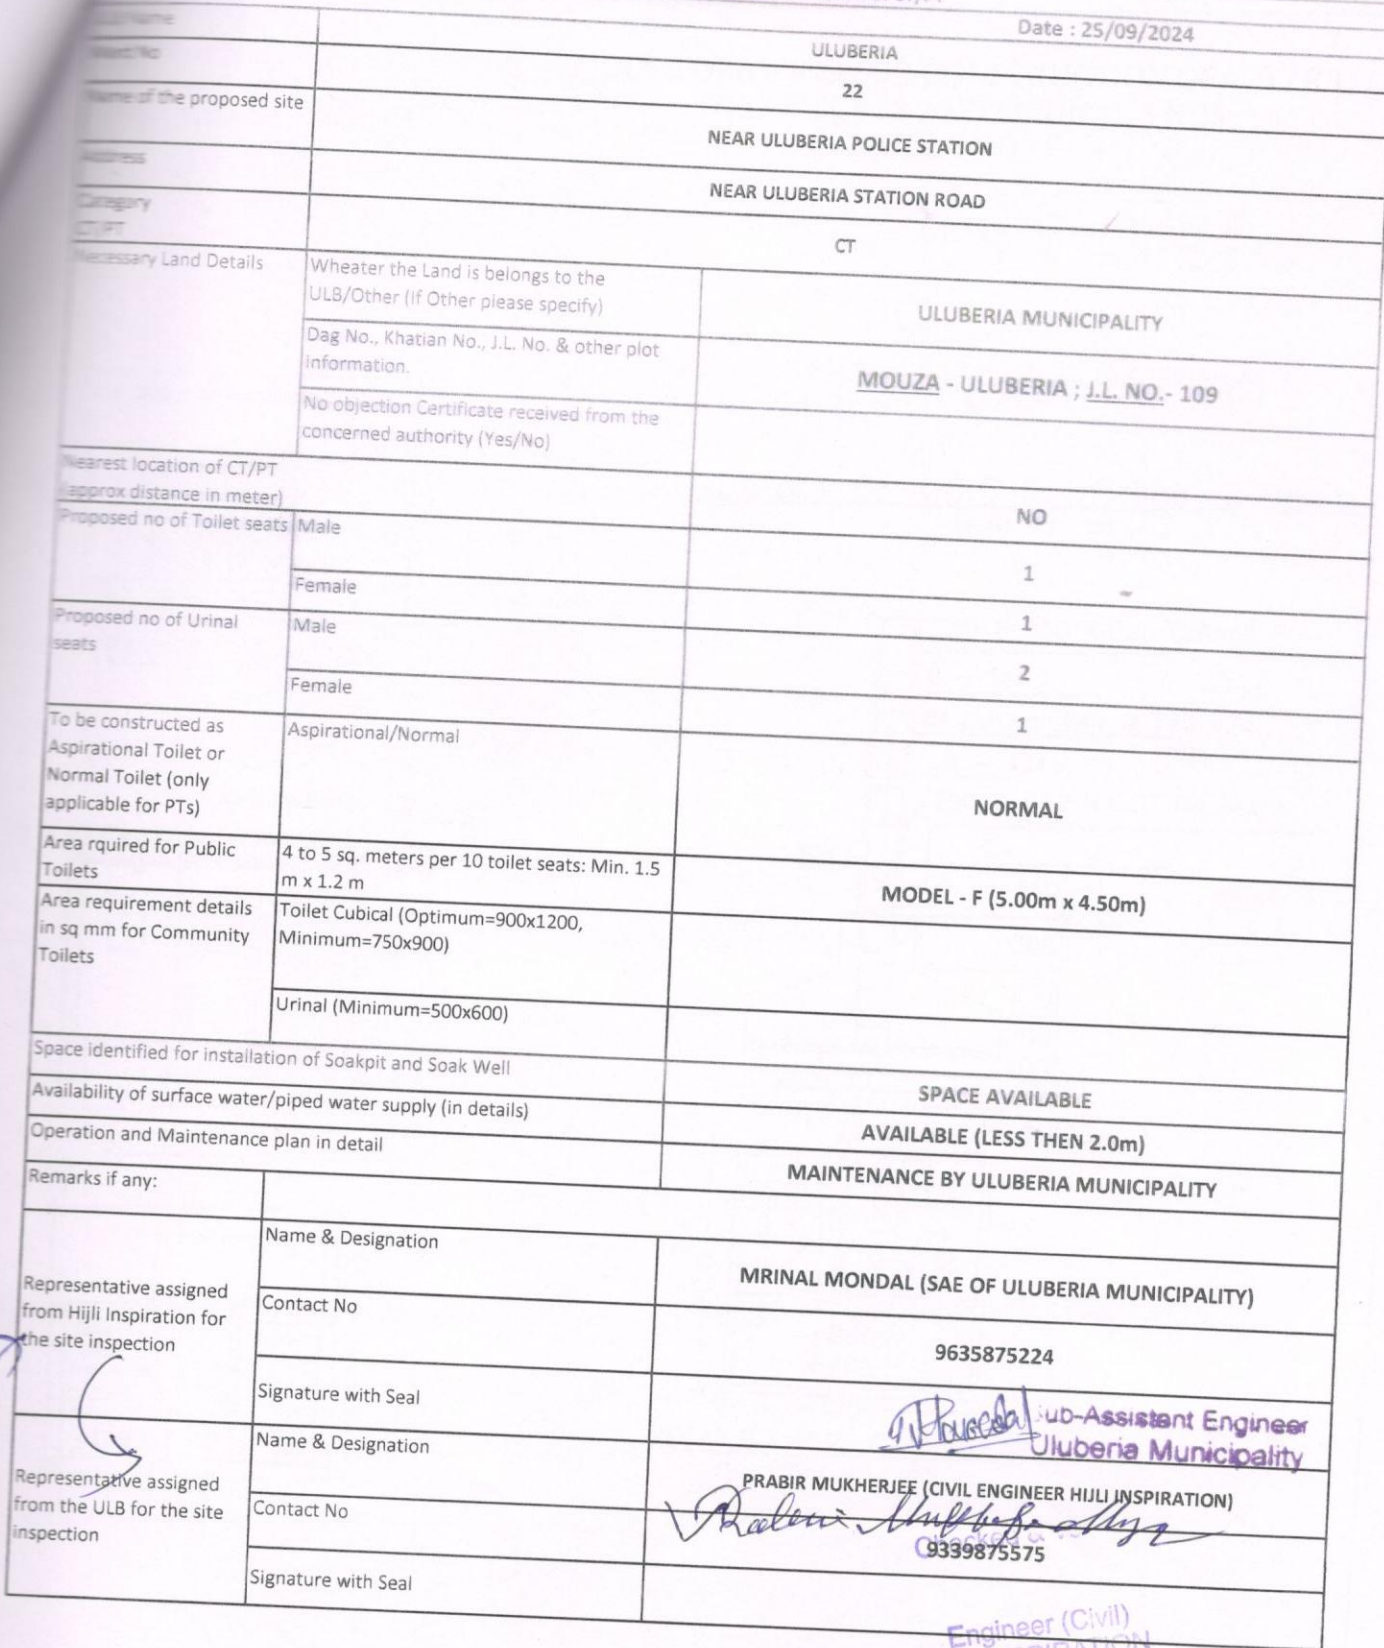 Date : 25/09/2024
ULB Name
ULUBERIA
Ward No
22
Name of the proposed site
NEAR ULUBERIA POLICE STATION
Address
NEAR ULUBERIA STATION ROAD
Category
CT/PT
CT
Necessary Land Details
Wheater the Land is belongs to the
ULB/Other (If Other please specify)
ULUBERIA MUNICIPALITY
Dag No., Khatian No., J.L. No. & other plot
information.
MOUZA - ULUBERIA ; J.L. NO.- 109
No objection Certificate received from the
concerned authority (Yes/No)
Nearest location of CT/PT
(approx distance in meter)
NO
Proposed no of Toilet seats
Male
1
Female
1
Proposed no of Urinal
seats
Male
2
Female
1
To be constructed as
Aspirational Toilet or
Normal Toilet (only
applicable for PTs)
Aspirational/Normal
NORMAL
Area rquired for Public
Toilets
4 to 5 sq. meters per 10 toilet seats: Min. 1.5
m x 1.2 m
MODEL - F (5.00m x 4.50m)
Area requirement details
in sq mm for Community
Toilets
Toilet Cubical (Optimum=900x1200,
Minimum=750x900)
Urinal (Minimum=500x600)
Space identified for installation of Soakpit and Soak Well
SPACE AVAILABLE
Availability of surface water/piped water supply (in details)
AVAILABLE (LESS THEN 2.0m)
Operation and Maintenance plan in detail
MAINTENANCE BY ULUBERIA MUNICIPALITY
Remarks if any:
Representative assigned
from Hijli Inspiration for
the site inspection
Name & Designation
MRINAL MONDAL (SAE OF ULUBERIA MUNICIPALITY)
Contact No
9635875224
Signature with Seal
Sub-Assistant Engineer
Uluberia Municipality
Representative assigned
from the ULB for the site
inspection
Name & Designation
PRABIR MUKHERJEE (CIVIL ENGINEER HIJLI INSPIRATION)
Contact No
Checked &
9339875575
Signature with Seal
Engineer (Civil)